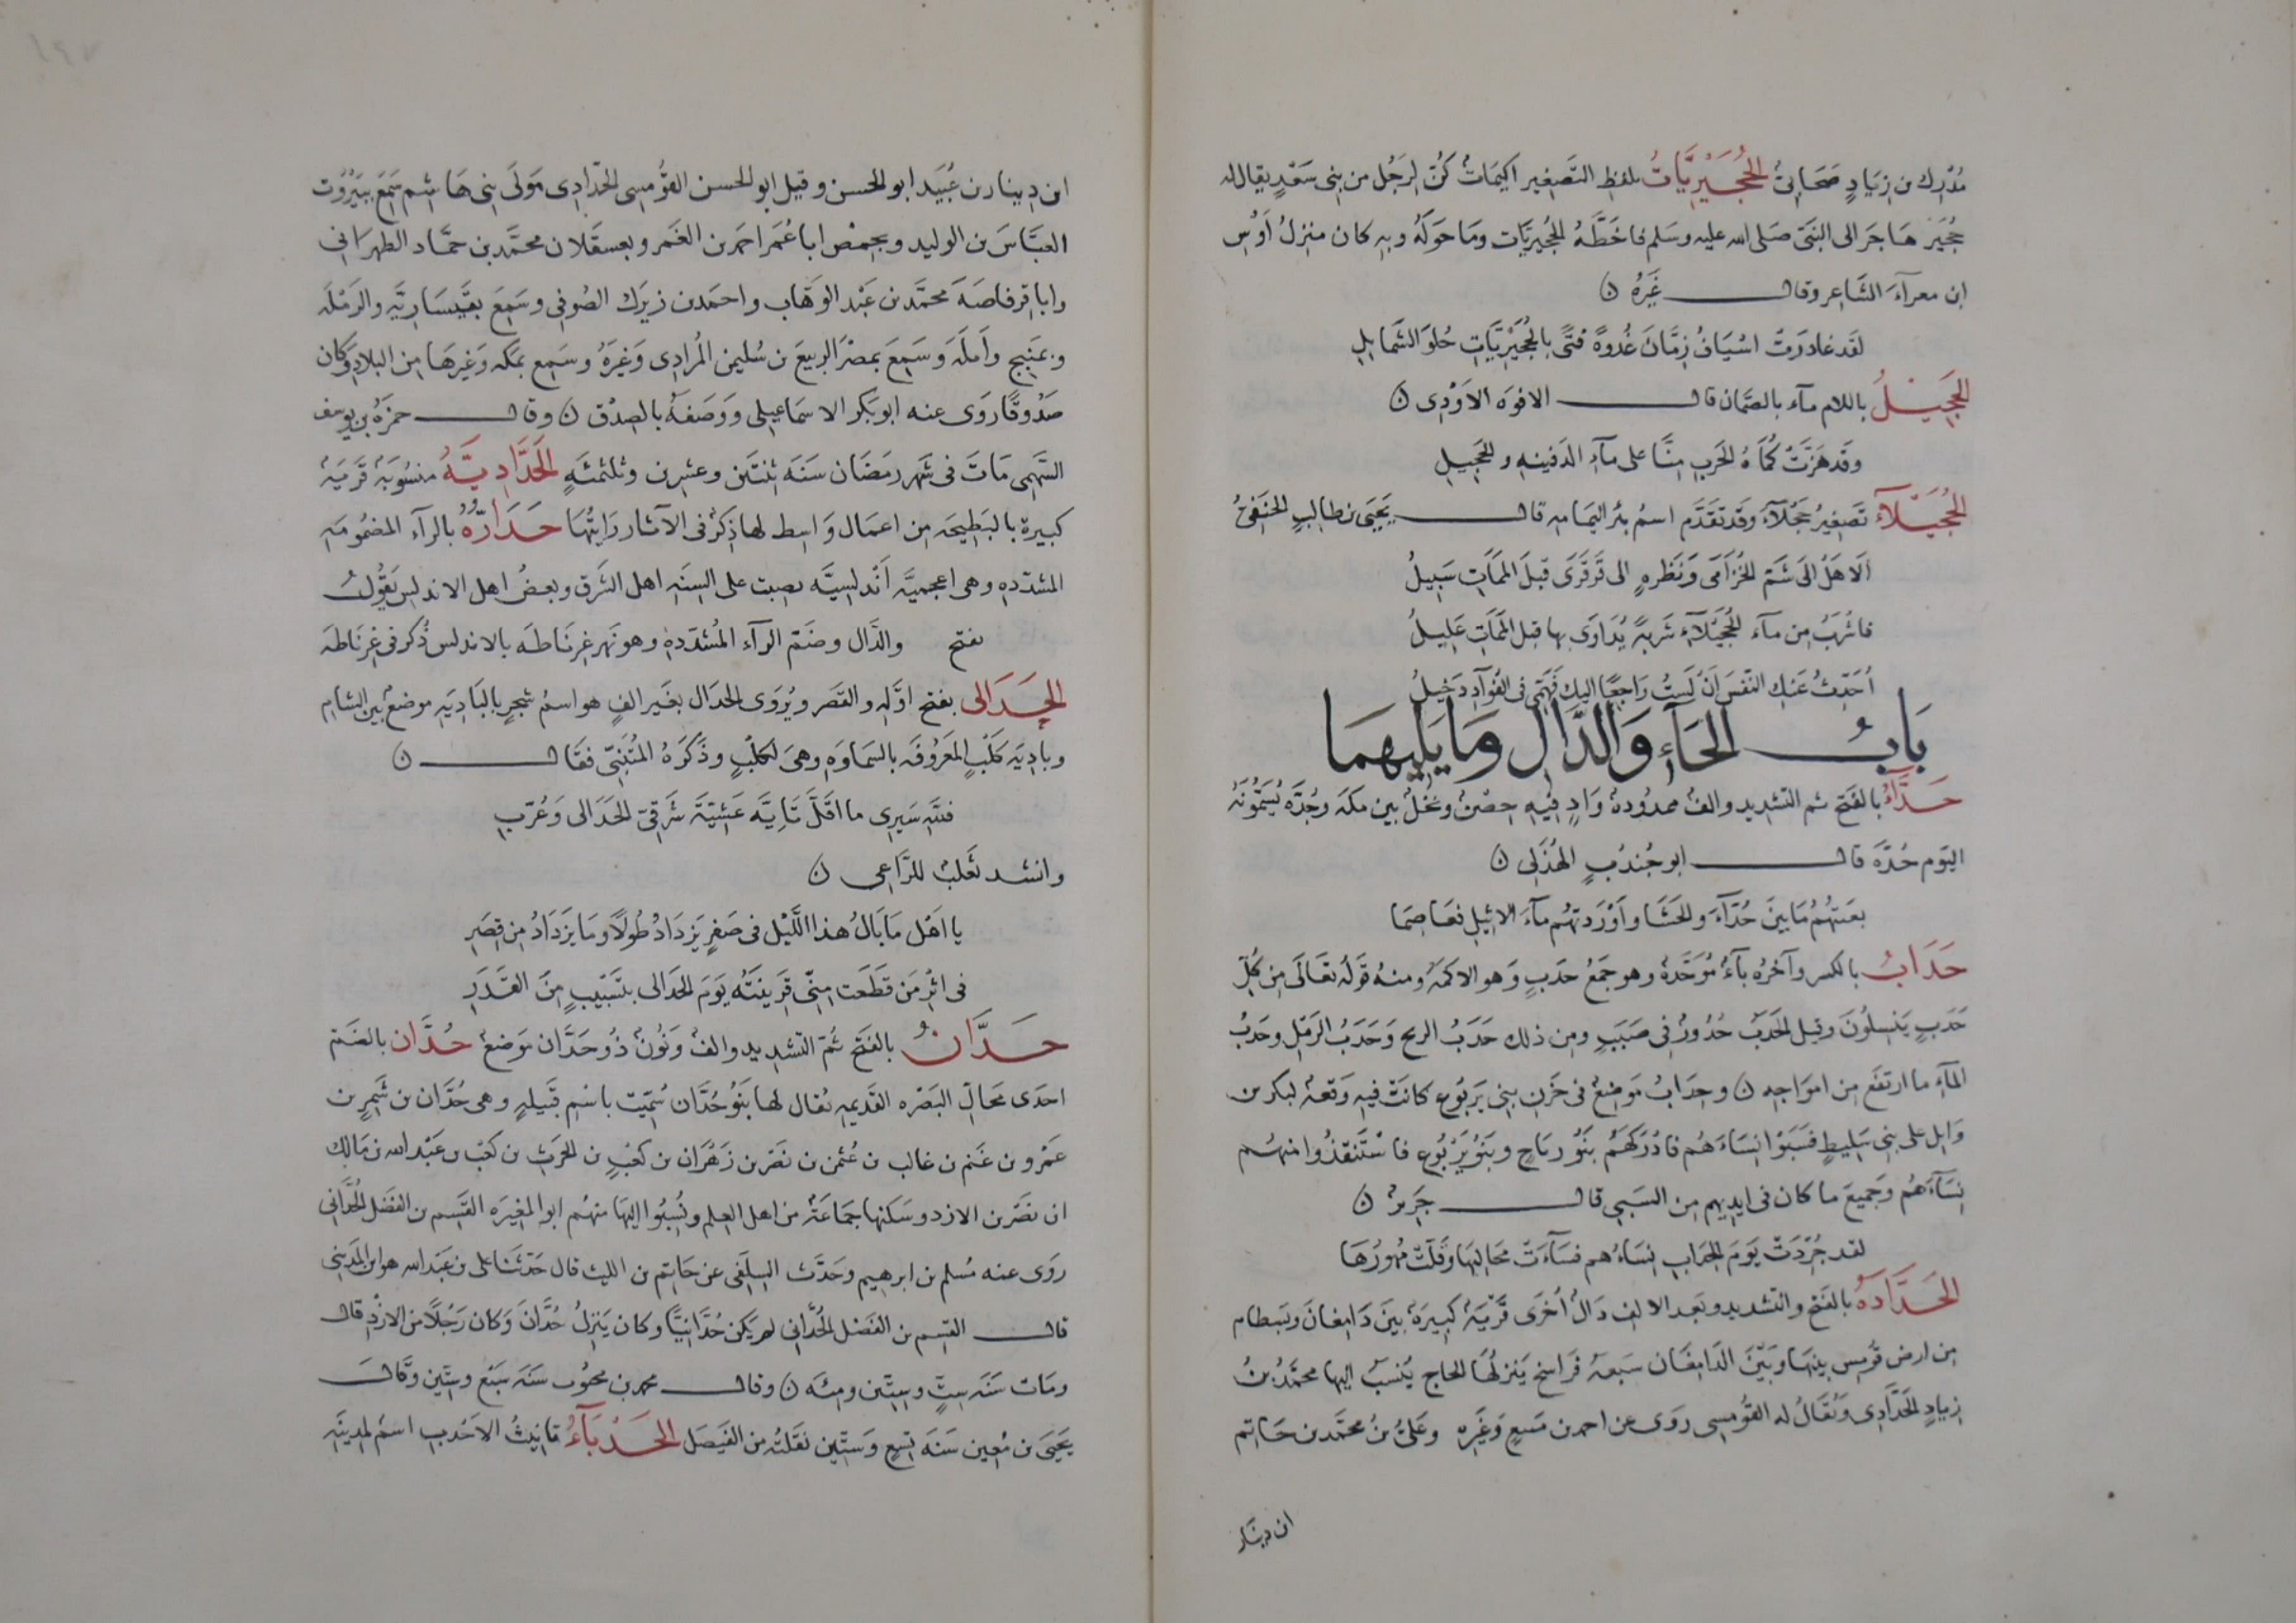 مُدْرِك بن زِيَادٍ صَحَابِيٌّ الحُجَيْرِيَّاتُ بلفظ التصغير اكيمَاتٌ كُنَّ لِرَجُل من بني سَعْدٍ يقال له
حُجَيْر هَاجَرَ الى النبيّ صَلى الله عليه وسَلم فاخَطَّهُ الحُجيريَّات ومَا حَولَهُ وبِهِ كان منزلُ اَوْس
ابن معرآءَ الشَاعر وقال غَيرُهُ ن
لقَد غادَرَتْ اسْيَافُ زِمَّانَ غُدوةً فتًى بالحُجَيْرِيَّاتِ حُلوَ الشَمايلِ
الحَجِيْلُ باللام مآء بالصَّمان قال الافوَه الاَوْدِى ن
وقَد مَرَّتْ كُمَاةُ الحَربِ مِنَّا على مآءِ الدَفينهِ والحَجِيلِ
الحُجَيْلَآء تصغيرُ حَجْلَآءَ وقد تقَدَّم اسمُ بئر اليَمَامه قال يَحيَى بن طالبٍ الحَنَفىُّ
اَلَا هَلْ الى شَمِّ الخُزَامَى وَنَظرهٍ الى قَرقَرَى قبلَ المَمَاتِ سَبِيلُ
فاشرَبَ مِن مآء الحُجَيْلَآءِ شَربةً يُدَاوَى بها قبل المَمَاتِ عَلِيلُ
اُحَدِّثُ عَنكِ النَفسَ اَنْ لَستُ رَاجِعًا اليكِ فَهَمِّى في الفُوآدِ دَخِيلُ
بَابُ الحَآءِ وَالدَّالِ ومَا يَلِيهمَا
حَدَّآءُ بالفَتح ثم التشديد والف ممدُودة وَادٍ فيْهِ حِصْنٌ ونخْلٌ بين مكه وجُدَّه يُسَمُّونَهُ
اليَوم حَدَّهَ قال ابو جُندُبٍ الهُذَلي ن
بغيتُهُمُ مَا بَينَ حَدَّآءَ والحَشَا واَوْرَدتهُم مآءَ الاثيلِ فعَاصِمَا
حِدَابُ بالكسر وآخرُه بآءٌ مُوَحَّدةٌ وهو جَمعُ حدَبٍ وَهو الاكمَهُ ومنهُ قَولُه تعَالَى مِن كُلِّ
حَدَبٍ يَنسِلُونَ وقيل الحَدَبُ حُدُورٌ في صَبَبٍ ومِن ذلك حَدَبُ الريح وَحَدَبُ الرَمْلِ وحَدبُ
المآءِ ما ارتفَع مِن امواجِهِ ن وحِدَابُ مَوضِعٌ في حَزن بني يَربُوع كانَتْ فيه وَقعهٌ لبكر بن
وَايل على بني سَلِيطٍ فسَبَوْا نِسَاءَهُم فادْرَكَهُمْ بَنُو رِيَاحٍ وبَنُو يَرْبُوع فاسْتَنقَذُوا منهُم
نِسَآءَهُم وَجَميعَ ما كان في ايدِيهم مِن السَبي قال جَرِيرٌ ن
لقد جُرِّدَتْ يَومَ الحِدَابِ نِسَاءُهم فسَآءَتْ مجَاليهَا وَقَلَّتْ مُهورُهَا
الحَدَّادَةُ بالفَتح والتشديد وبَعد الالف دَالٌ اُخرَى قَريَةٌ كبيرَةٌ بَينَ دَامِغانَ وبَسطام
مِن ارض قُومِس بينهَا وبَيْنَ الدَامغَان سَبعهُ فَرَاسخ يَنزلهَا الحاج يُنسَبُ اليها محمَّدُ بنُ
زيادٍ الحَدَّادِى وَيُقَالُ له القُومِسى رَوَى عن احمد بن مَنيعٍ وَغَيرِه وعَلىُّ بنُ محمَّد بن حَاتم
ابن دينار
ابن دِينار بن عُبَيد ابو الحسن وقيل ابو الحسن القُومِسى الحَدّادِى مَولَى بني هَاشِم سَمِعَ ببَيْرُوت
العبَّاسَ بن الوليد وبحِمْص ابا عُمَر احمد بن الغَمر وبعسقلان محمَّد بن حمَّاد الطهرَاني
وابا قِرفاصَهَ محمَّد بن عَبْد الوَهَّاب واحمد بن زيرَك الصُوفي وسَمِعَ بقَيسَاريَّه والرَمْلَه
وبمَنْبِج واَملَه وسَمِعَ بمصْرَ الربيعَ بن سُليمن المُرادِى وَغَيرَهُ وسَمِع بمكه وَغَيرهَا مِن البلادِ وَكان
صَدُوقًا رَوَى عنه ابو بَكر الاسمَاعيلى وَوَصَفهُ بالصِدْق ن وقال حمزَهُ بن يوسف
السَهمى مَاتَ في شَهر رمَضَان سَنَهَ ثنتَين وعشرين وثلثمئَهٍ الحَدَّادِيَّهُ منسُوبَهٌ قَريَهٌ
كبيرة بالبَطِيحَه مِن اعمَال وَاسِط لها ذِكرٌ في الآثار رَايتُهَا حَدَارُّهُ بالرآء المضمُومَه
المشدّدهِ وهى اعجميَّه اَندلسِيَّه بصيت على السِنَهِ اهل الشَرق وبعضُ اهل الاندلس يَقُولُ
بفتح والدَال وضَمّ الرآء المُشدّدهِ وهو نهر غِرنَاطه بالاندلس ذُكر في غِرنَاطَه
الحَدَالى بفتح اوَّله والقَصر ويُروَى الحدَال بغَير الفٍ هو اسمُ شجرٍ بالبَادِيَهِ موضعٌ بين الشام
وبادِيَه كلْبٍ المَعرُوفَه بالسَمَاوَهِ وهىَ لكلْبٍ وذَكَرَهُ المُتَنبِّى فقال ن
فللّهِ سَيرِى ما اقَلَّ تَايِيَّه عَشِيَّةَ شَرقِيّ الحَدَالى وَغُرَّبِ
وانشد ثَعلبٌ للرّاعى ن
يا اهْل مَا بَالُ هذا اللَّيْل في صَفَرٍ يَزدَادُ طُولًا ومَا يَزدَادُ مِن قِصَرِ
في اثْرِ مَن قَطَعَت مِنّى قَرِينَتُه يَومَ الحَدالى بتَسْبِيبٍ مِنَ القَدَرِ
حَدَّانُ بالفتح ثمّ التشديد والفٌ وَنُونٌ ذُو حَدَّان مَوضعٌ حُدَّان بالضَم
احدَى مَحالِّ البَصْره القَديمهِ يُقال لها بَنُو حُدَّان سُمّيَت باسْم قَبيلهٍ وهى حُدَّان بن شَمسِ بن
عَمْرو بن غَنم بن غالب بن عُثمن بن نصْر بن زَهْرَان بن كعْبٍ بن الحرث بن كعب بن عَبْد الله بن مَالك
ابن نصْر بن الازد وسَكنها جَمَاعَةٌ من اهل العِلم ونُسِبُوا اليهَا منهُم ابو المغيرَه القسَم بن الفَضل الحُدَّاني
روَى عنه مُسلم بن ابرهيم وحَدَّث السِلَفى عن حَاتِم بن الليث قال حَدّثنَا على بن عَبْد الله هو ابن المَديني
قال القسِم بن الفَضْل الحُدَّاني لم يَكن حُدَّانِيًّا وكان يَنزِلُ حُدَّانَ وَكان رَجُلًا من الازْدِ قال
ومَات سَنَه سِتٍّ وسِتِّين ومِئَه ن وقال محمد بن محبُوب سَنَه سَبْع وسِتّين وقَال
يَحيَى بن مُعِين سَنَه تِسعٍ وَستّين نقَلتُه من الفَيصَل الحَدْبَآءُ تانيثُ الاَحْدبِ اسمٌ لمدِينَه